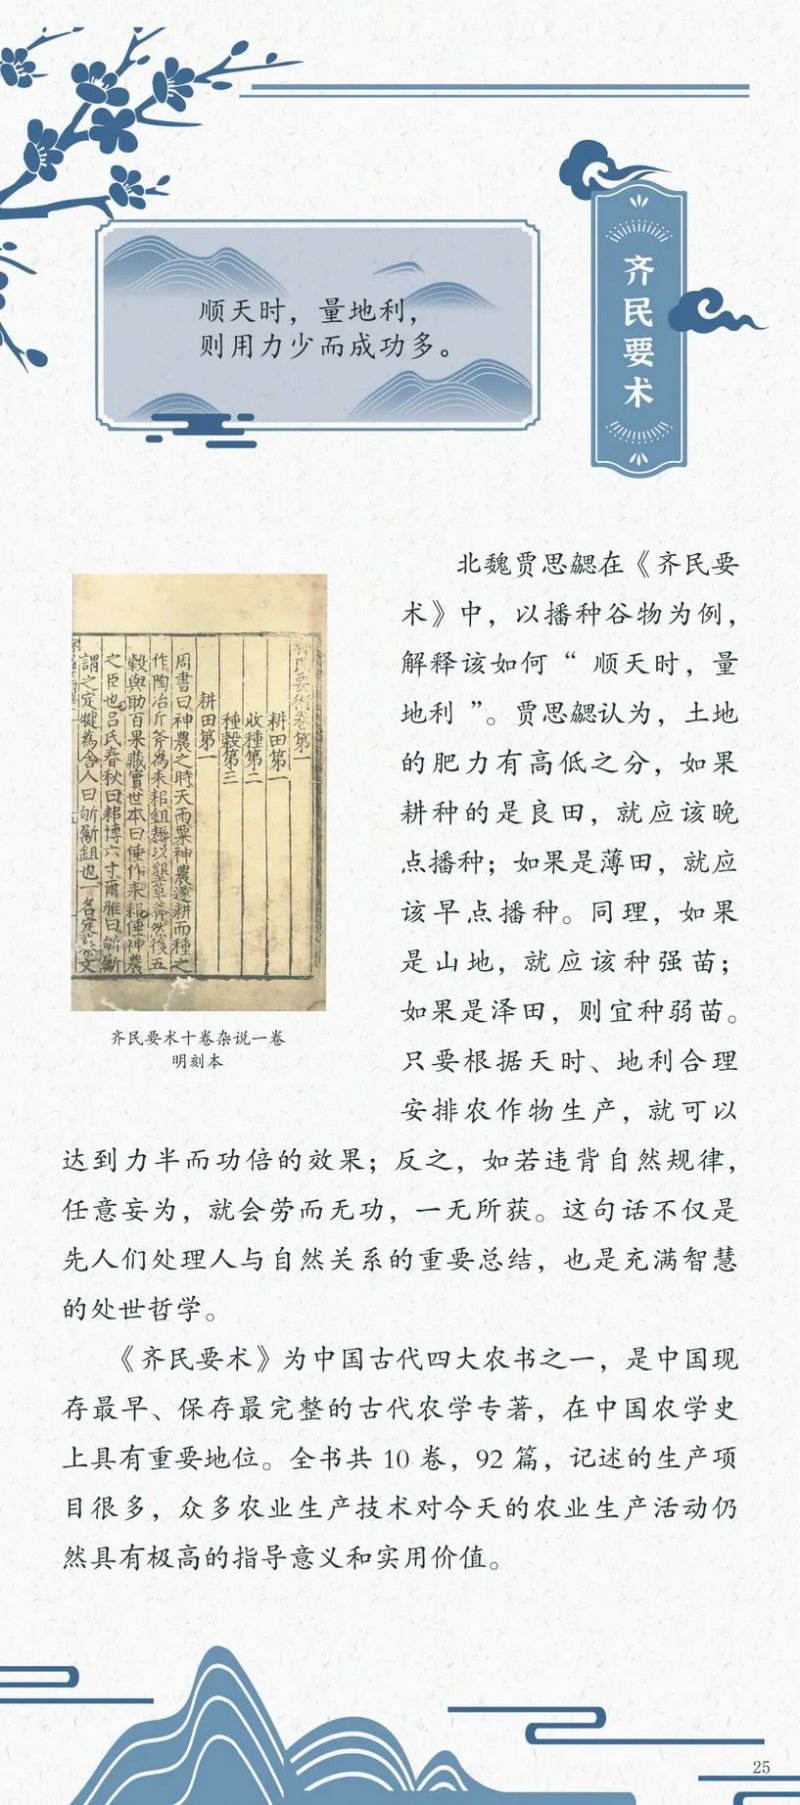 齐民要术
顺天时，量地利，
则用力少而成功多。
北魏贾思勰在《齐民要
术》中，以播种谷物为例，
解释该如何“顺天时，量
地利”。贾思勰认为，土地
的肥力有高低之分，如果
耕种的是良田，就应该晚
点播种；如果是薄田，就应
该早点播种。同理，如果
是山地，就应该种强苗；
如果是泽田，则宜种弱苗。
只要根据天时、地利合理
安排农作物生产，就可以
达到力半而功倍的效果；反之，如若违背自然规律，
任意妄为，就会劳而无功，一无所获。这句话不仅是
先人们处理人与自然关系的重要总结，也是充满智慧
的处世哲学。
齊民要術卷第一
耕田第一
收種第二
種穀第三
耕田第一
周書曰神農之時天雨粟神農遂耕而種之
作陶冶斤斧為耒耜鉏耨以墾草莽然後五
穀與助百果藏實世本曰倕作耒耜倕神農
之臣也吕氏春秋曰耜博六寸爾雅曰斪斸
謂之定犍為舍人曰斪斸鉏也一名定
齐民要术十卷杂说一卷
明刻本
《齐民要术》为中国古代四大农书之一，是中国现
存最早、保存最完整的古代农学专著，在中国农学史
上具有重要地位。全书共 10 卷，92 篇，记述的生产项
目很多，众多农业生产技术对今天的农业生产活动仍
然具有极高的指导意义和实用价值。
25